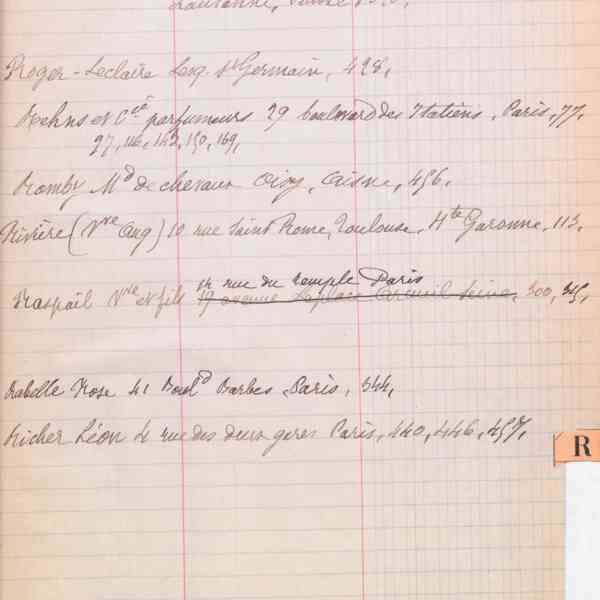 Lausanne, Suisse
Roger-Leclaire Esq. St Germain, 428,
Rehns et Cie parfumeurs 29 boulevard des Italiens, Paris, 77,
97, 116, 143, 150, 169,
Romby Md de chevaux Oisy, Aisne, 456.
Rivière (Vve Aug) 10 rue Saint Rome, Toulouse, Hte Garonne, 113,
14 rue du Temple Paris
Raspail Vve et fils 19 avenue Laplace Arcueil Seine, 300, 345,
Rabelle Rose 41 Bould Barbes Paris, 344,
Richer Léon 4 rue des deux gares Paris, 440, 446, 457,
R